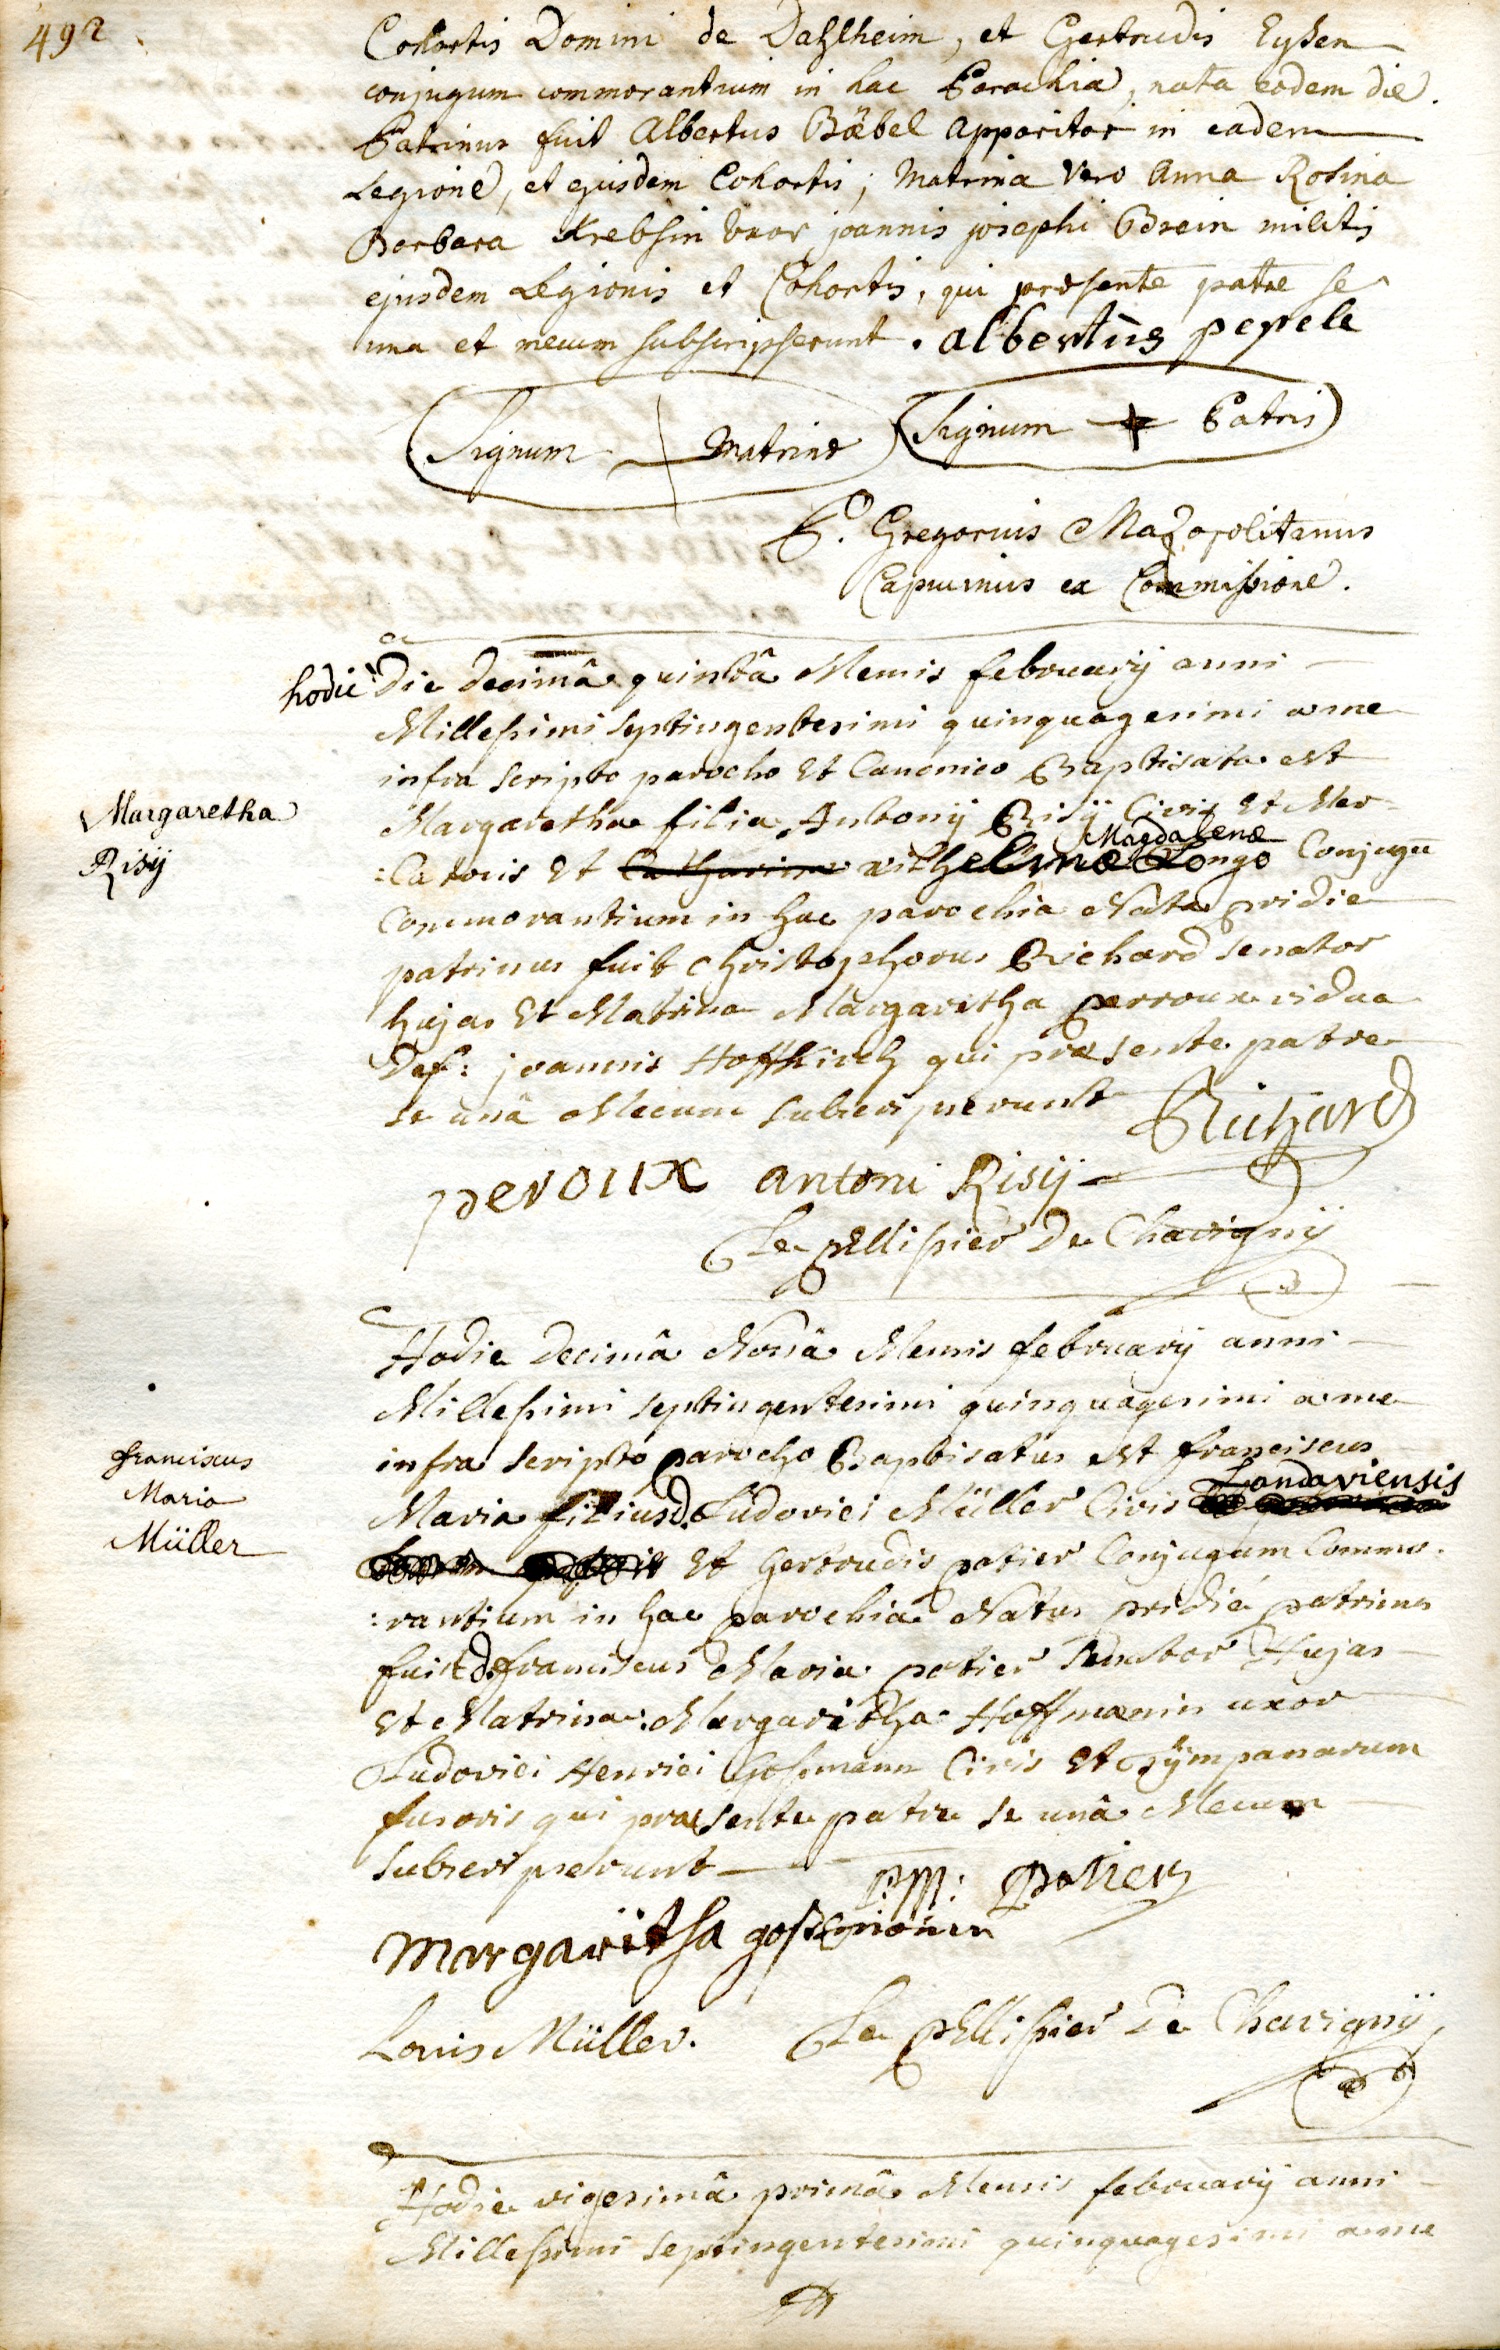 492
Cohortis Domini de Dahlheim, et Gertrudis Eyßen
conjugum commorantium in hac Parochia, nata eodem die.
Patrinus fuit Albertus Bäbel Apparitor in eadem
Legione, et ejusdem Cohortis; Matrina vero Anna Rosina
Barbara Krebsin Uxor joannis josephi Brein militis
ejusdem Legionis et Cohortis, qui præsente patre se
una et mecum subscripserunt. albertus pepele
Signum + Matrinæ Signum + Patris
P. Gregorius Capucinus ex Commissione.
hodie Die decimâ quintâ Mensis february anni
Millesimi septingentesimi quinquagesimi a me
infra scripto parocho Et Canonico Baptisata est
Margaretha
Risÿ
Margaretha filia Antonÿ Risÿ Civis Et Mer-
Magdalenæ
:Catoris Et Catharinæ wilhelmæ Longo Conjugū
Commorantium in hac parochia Nata pridie
patrinus fuit Christophorus Richard Senator
hujas Et Matrina Margaritha perroux vidua
Def: joannis Hoffkirch qui præsente patre
se unâ Mecum subscripserunt Richard
peroux antoni Risÿ
Le pellissier De Chavignÿ
Hodie Decimâ Nonâ Mensis february anni
Millesimi septingentesimi quinquagesimi a me
infra scripto parocho Baptisatus est franciscus
franciscus
Maria
Müller
Landaviensis
Maria filius d. Ludovici Müller Civis
Et Gertrudis potier Conjugum Commo.
:rantium in hac parochia Natus pridie patrinus
fuit d. franciscus Maria potier Senator Hujas
Et Matrina Margaritha Hoffmanin uxor
Ludovici Henrici Gossmann Civis Et Tÿmpanarum
fusoris qui præsente patre se unâ Mecum
subscripserunt
f:m: Potier
Margaritha
Louis Müller. Le pellissier De Chavignÿ
Hodie vigesimâ primâ Mensis february anni
Millesimi septingentesimi quinquagesimi a me